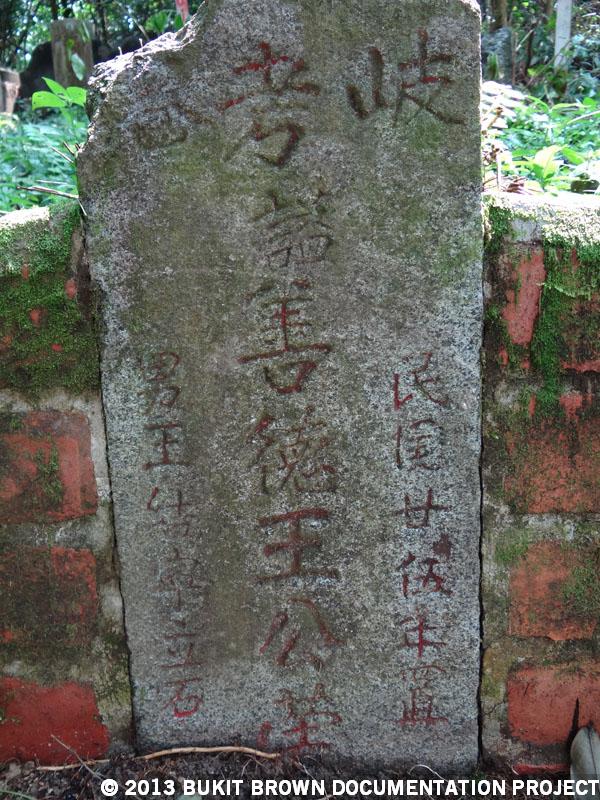 岐
考諡善德王公塋
民國廿伍年
男王
立石
© 2013 BUKIT BROWN DOCUMENTATION PROJECT